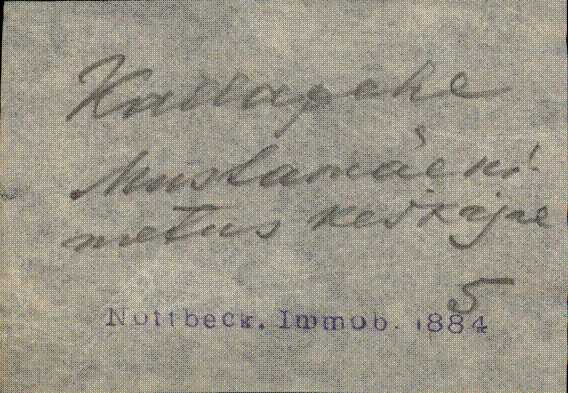 Kallapehe
Mustamäe ni-
metus keskaja
5
Nottbeck. Immob. 1884